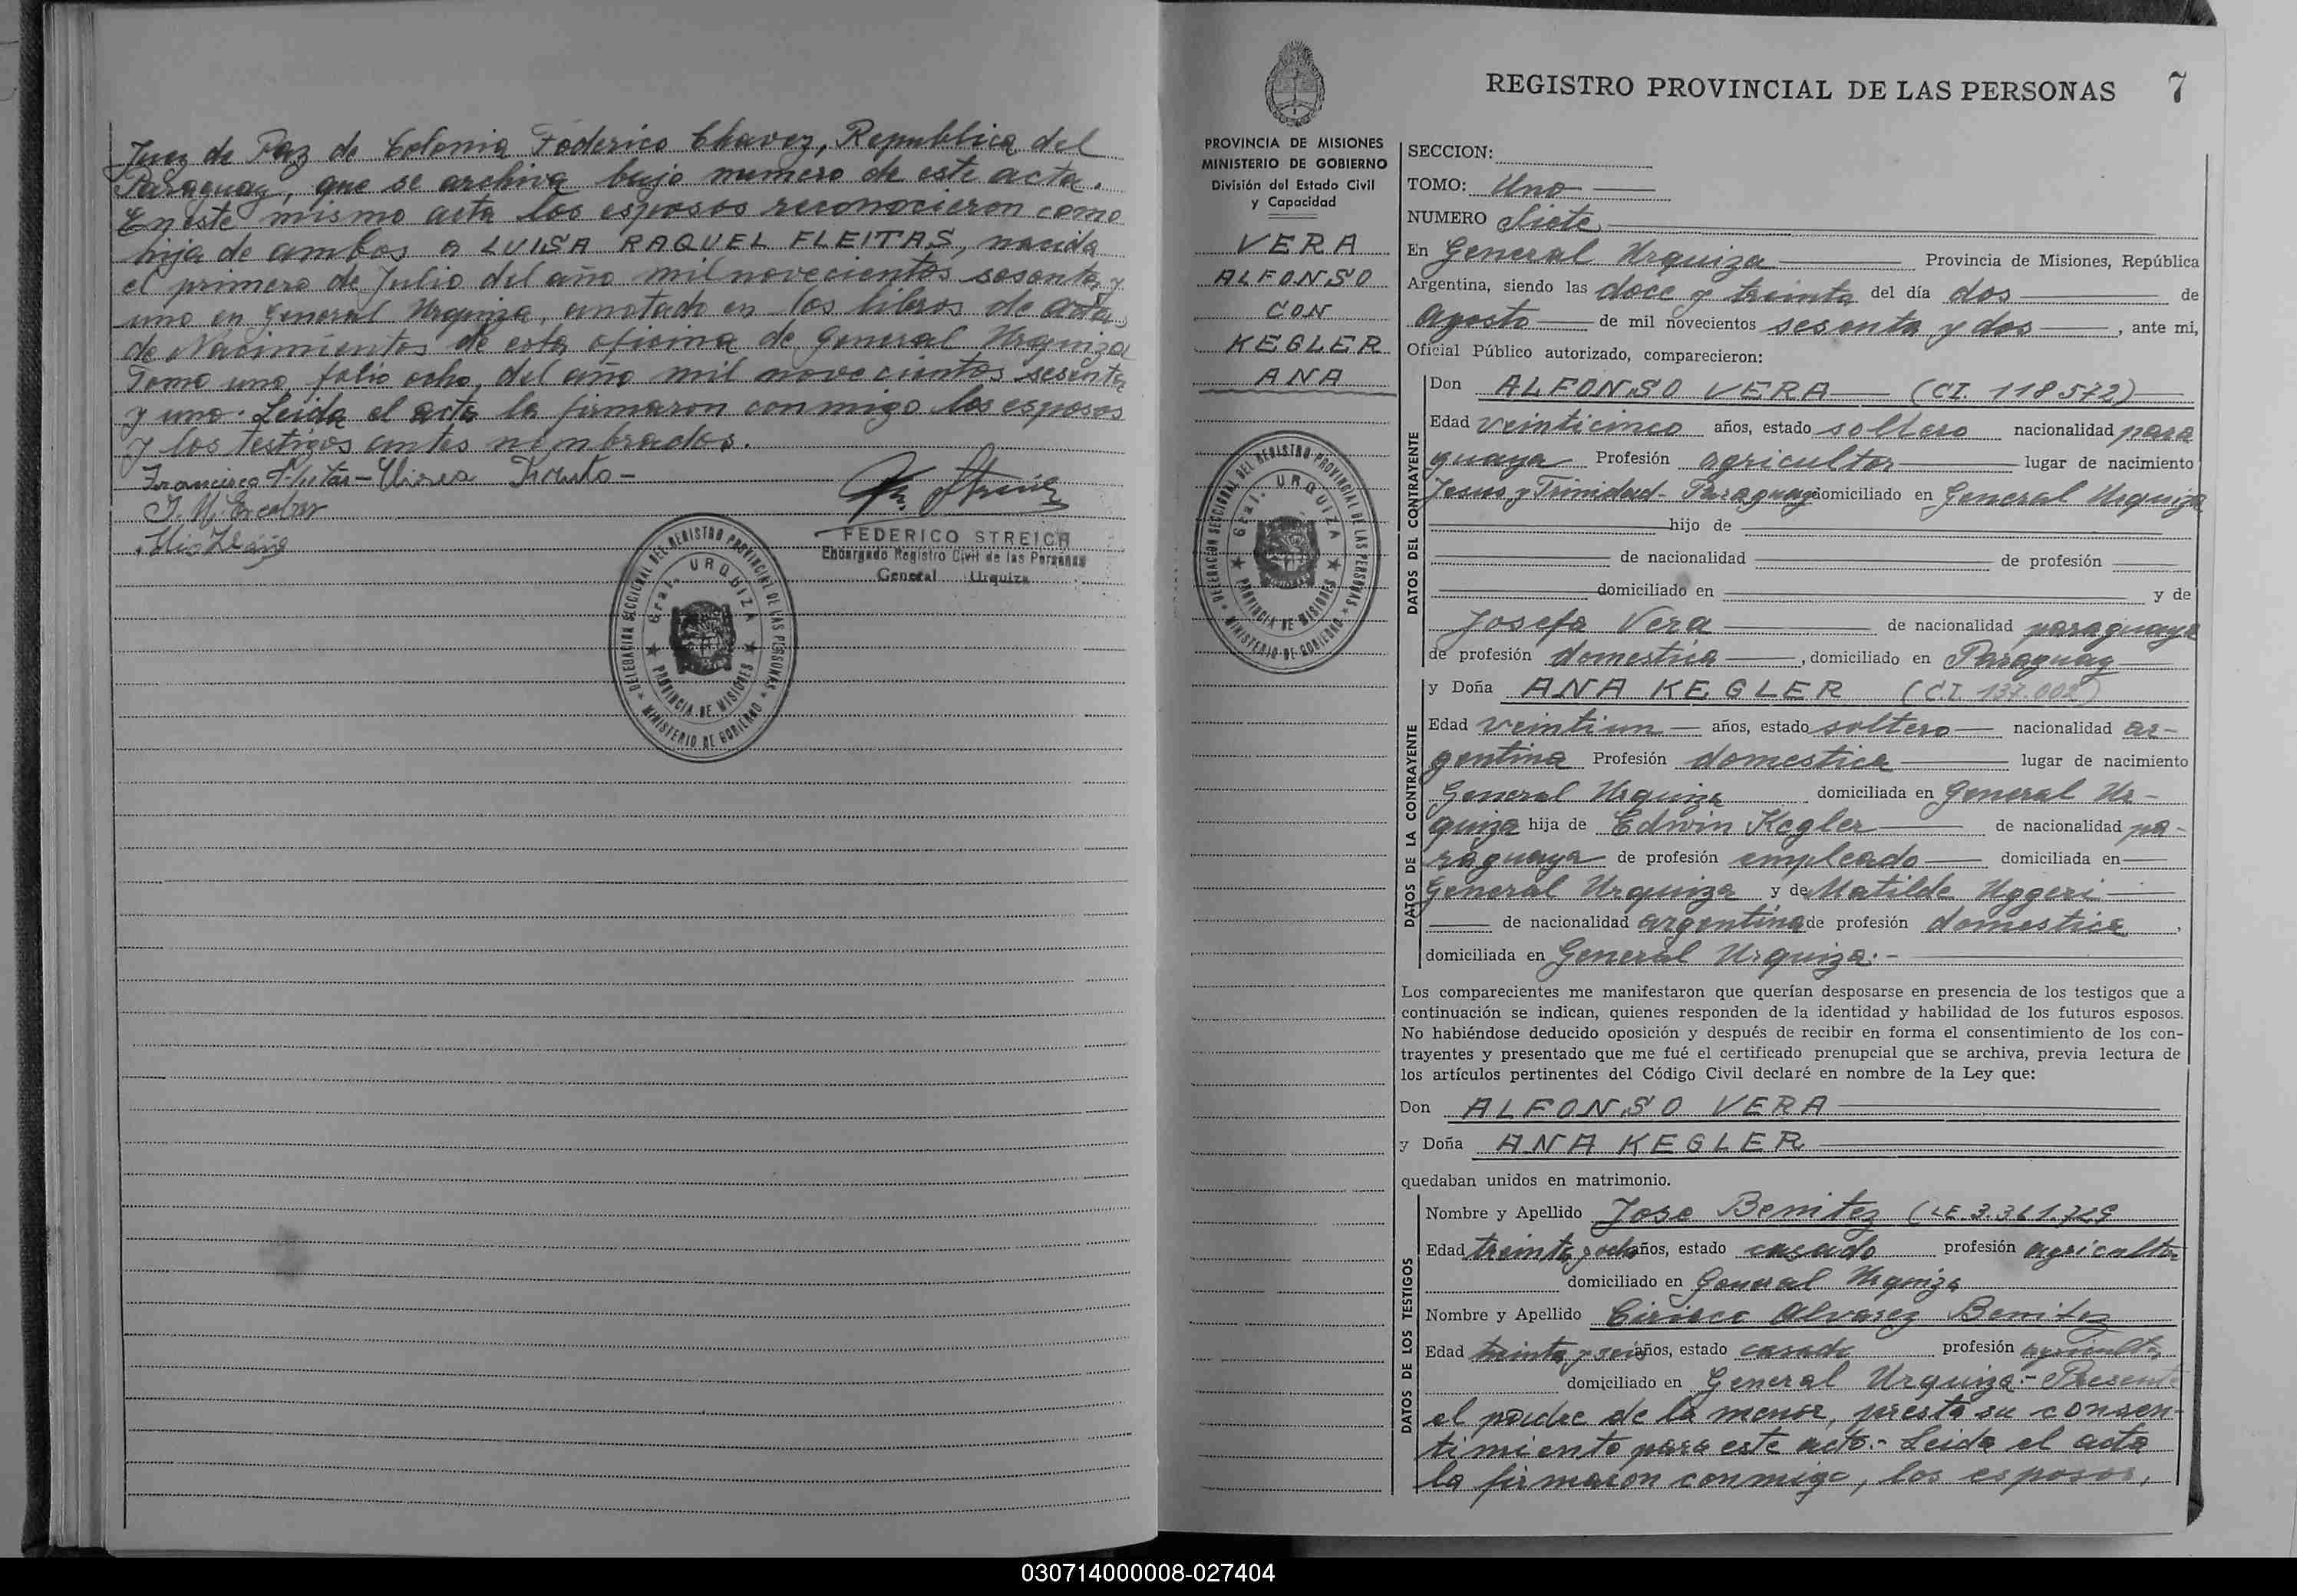 Juez de Paz de Colonia Federico Chavez, Republica del
Paraguay, que se archiva bajo numero de este acta.
En este mismo acta los esposos reconocieron como
hija de ambos a LUISA RAQUEL FLEITAS, nacida
el primero de Julio del año mil novecientos sesenta y
uno en General Urquiza, anotado en los libros de actas
de Nacimientos de esta oficina de General Urquiza
Tomo uno, folio ocho, del año mil novecientos sesenta
y uno. Leida el acta la firmaron conmigo los esposos
y los testigos antes nombrados.
Francisca Fleitas -
J. M. Escobar
FEDERICO STREICH
Encargado Registro Civil de las Personas
General Urquiza
DELEGACION SECCIONAL DEL REGISTRO PROVINCIAL DE LAS PERSONAS
Gral. URQUIZA
PROVINCIA DE MISIONES
MINISTERIO DE GOBIERNO
REGISTRO PROVINCIAL DE LAS PERSONAS 7
PROVINCIA DE MISIONES
MINISTERIO DE GOBIERNO
División del Estado Civil
y Capacidad
VERA
ALFONSO
CON
KEGLER
ANA
DELEGACION SECCIONAL DEL REGISTRO PROVINCIAL DE LAS PERSONAS
Gral. URQUIZA
PROVINCIA DE MISIONES
MINISTERIO DE GOBIERNO
SECCION:
TOMO: Uno
NUMERO Siete
En General Urquiza Provincia de Misiones, República
Argentina, siendo las doce y treinta del día dos de
Agosto de mil novecientos sesenta y dos, ante mi,
Oficial Público autorizado, comparecieron:
DATOS DEL CONTRAYENTE
Don ALFONSO VERA (CI. 118572)
Edad veinticinco años, estado soltero nacionalidad para
guaya Profesión agricultor lugar de nacimiento
Jesus y Trinidad - Paraguay domiciliado en General Urquiza
hijo de
de nacionalidad de profesión
domiciliado en y de
Josefa Vera de nacionalidad paraguaya
de profesión domestica, domiciliado en Paraguay
DATOS DE LA CONTRAYENTE
y Doña ANA KEGLER (C.I. 137.002)
Edad veintiun años, estado soltera nacionalidad ar-
gentina Profesión domestica lugar de nacimiento
General Urquiza domiciliada en General Ur-
quiza hija de Edwin Kegler de nacionalidad pa-
raguaya de profesión empleado domiciliada en
General Urquiza y de Matilde Uggeri
de nacionalidad argentina de profesión domestica,
domiciliada en General Urquiza.-
Los comparecientes me manifestaron que querían desposarse en presencia de los testigos que a
continuación se indican, quienes responden de la identidad y habilidad de los futuros esposos.
No habiéndose deducido oposición y después de recibir en forma el consentimiento de los con-
trayentes y presentado que me fué el certificado prenupcial que se archiva, previa lectura de
los artículos pertinentes del Código Civil declaré en nombre de la Ley que:
Don ALFONSO VERA
y Doña ANA KEGLER
quedaban unidos en matrimonio.
DATOS DE LOS TESTIGOS
Nombre y Apellido Jose Benitez (LE. 3.361.729
Edad treinta y ocho años, estado casado profesión agricultor
domiciliado en General Urquiza
Nombre y Apellido Ciriaco Alvarez Benitez
Edad treinta y seis años, estado casado profesión agricultor
domiciliado en General Urquiza.- Presente
el padre de la menor, presta su consen-
timiento para este acto.- Leida el acta
la firmaron conmigo, los esposos,
030714000008-027404